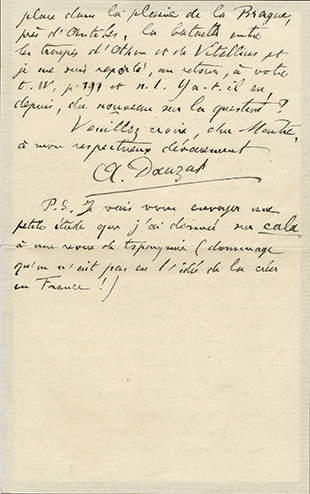 place dans la plaine de la Brague,
près d'Antibes, la bataille entre
les troupes d'Othon et de Vitellius et
je me suis reporté, au retour, à votre
t. IV, p. 199 et n. 1. Y a-t-il eu,
depuis, du nouveau sur la question ?
Veuillez croire, cher Maître,
à mon respectueux dévouement
A. Dauzat
P.S. Je vais vous envoyer une
petite étude que j'ai donnée sur cala
à une revue de toponymie (dommage
qu'on n'ait pas eu l'idée de la créer
en France !)